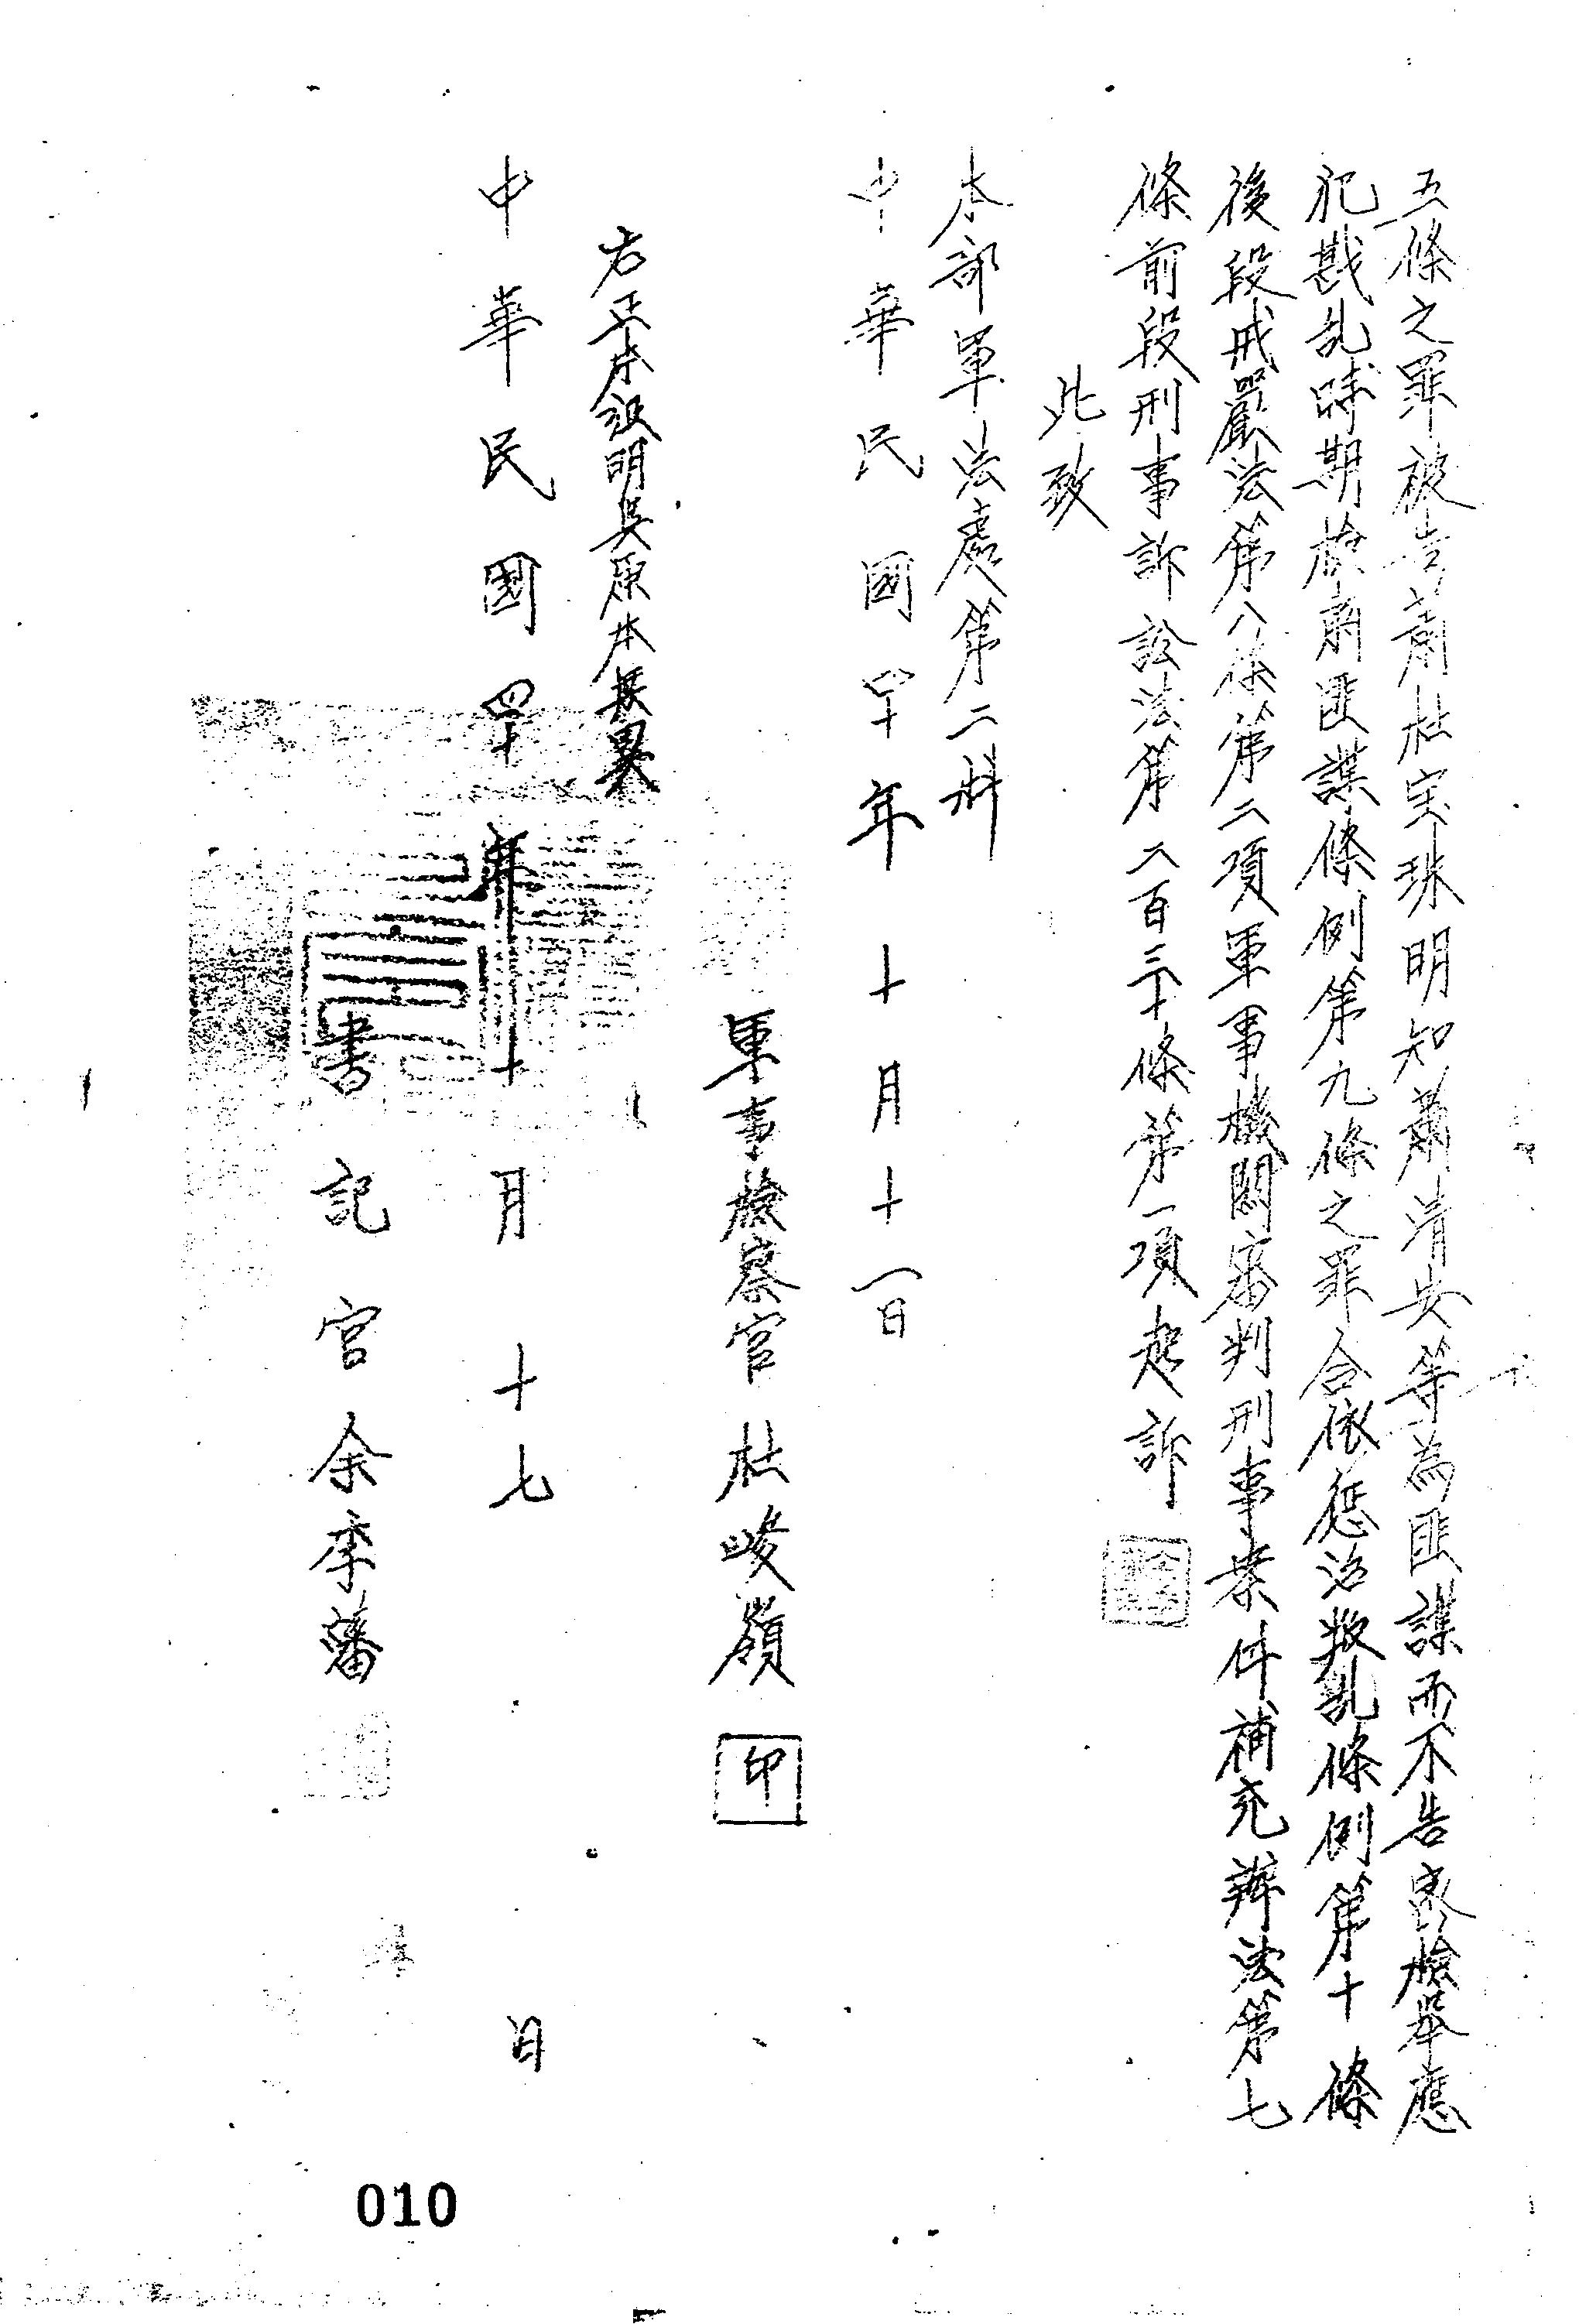 五條之罪被告蕭杜宝珠明知蕭清安等為匪諜而不告密檢舉應
犯戡乱時期檢肅匪諜條例第九條之罪合依懲治叛乱條例第十條
後段戒嚴法第八條第二項軍事機關審判刑事案件補充辦法第七
條前段刑事訴訟法第二百三十條第一項起訴
此致
本部軍法處第二科
中華民國四十年十月十一日
軍事檢察官杜峻嶺 印
右正本証明與原本無異
中華民國四十年十月十七日
書記官余李藩
010